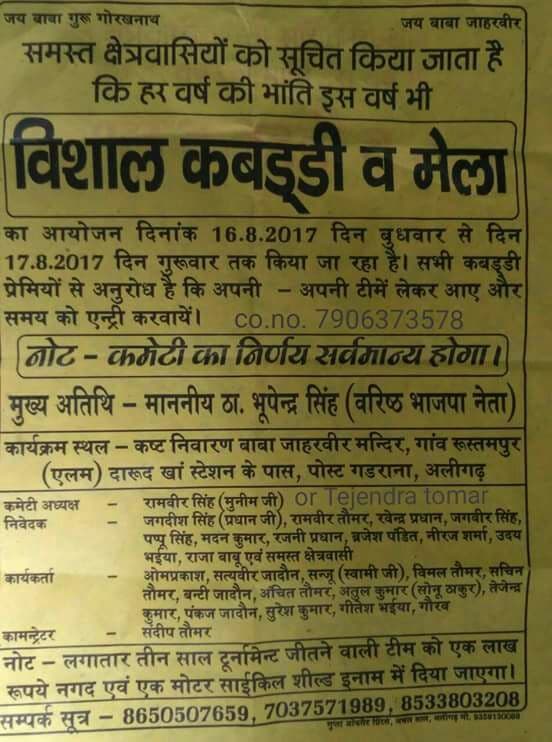 जय बाबा गुरू गोरखनाथ जय बाबा जाहरवीर
समस्त क्षेत्रवासियों को सूचित किया जाता है
कि हर वर्ष की भांति इस वर्ष भी
विशाल कबड्डी व मेला
का आयोजन दिनांक 16.8.2017 दिन बुधवार से दिन
17.8.2017 दिन गुरूवार तक किया जा रहा है। सभी कबड्डी
प्रेमियों से अनुरोध है कि अपनी – अपनी टीमें लेकर आए और
समय को एन्ट्री करवायें। co.no. 7906373578
नोट – कमेटी का निर्णय सर्वमान्य होगा।
मुख्य अतिथि – माननीय ठा. भूपेन्द्र सिंह (वरिष्ठ भाजपा नेता)
कार्यक्रम स्थल – कष्ट निवारण बाबा जाहरवीर मन्दिर, गांव रूस्तमपुर
(एलम) दारूद खां स्टेशन के पास, पोस्ट गडराना, अलीगढ़
कमेटी अध्यक्ष – रामवीर सिंह (मुनीम जी) or Tejendra tomar
निवेदक – जगदीश सिंह (प्रधान जी), रामवीर तौमर, रवेन्द्र प्रधान, जगवीर सिंह,
पप्पू सिंह, मदन कुमार, रजनी प्रधान, ब्रजेश पंडित, नीरज शर्मा, उदय
भईया, राजा बाबू एवं समस्त क्षेत्रवासी
कार्यकर्ता – ओमप्रकाश, सत्यवीर जादौन, सन्जू (स्वामी जी), विमल तौमर, सचिन
तौमर, बन्टी जादौन, अंचित तौमर, अतुल कुमार (सोनू ठाकुर), तेजेन्द्र
कुमार, पंकज जादौन, सुरेश कुमार, गीतेश भईया, गौरव
कामन्ट्रेटर – संदीप तौमर
नोट – लगातार तीन साल टूर्नामेन्ट जीतने वाली टीम को एक लाख
रूपये नगद एवं एक मोटर साईकिल शील्ड इनाम में दिया जाएगा।
सम्पर्क सूत्र – 8650507659, 7037571989, 8533803208
गुप्ता ऑफसैट प्रिंटर्स, अलीगढ़ मो. 9359130089